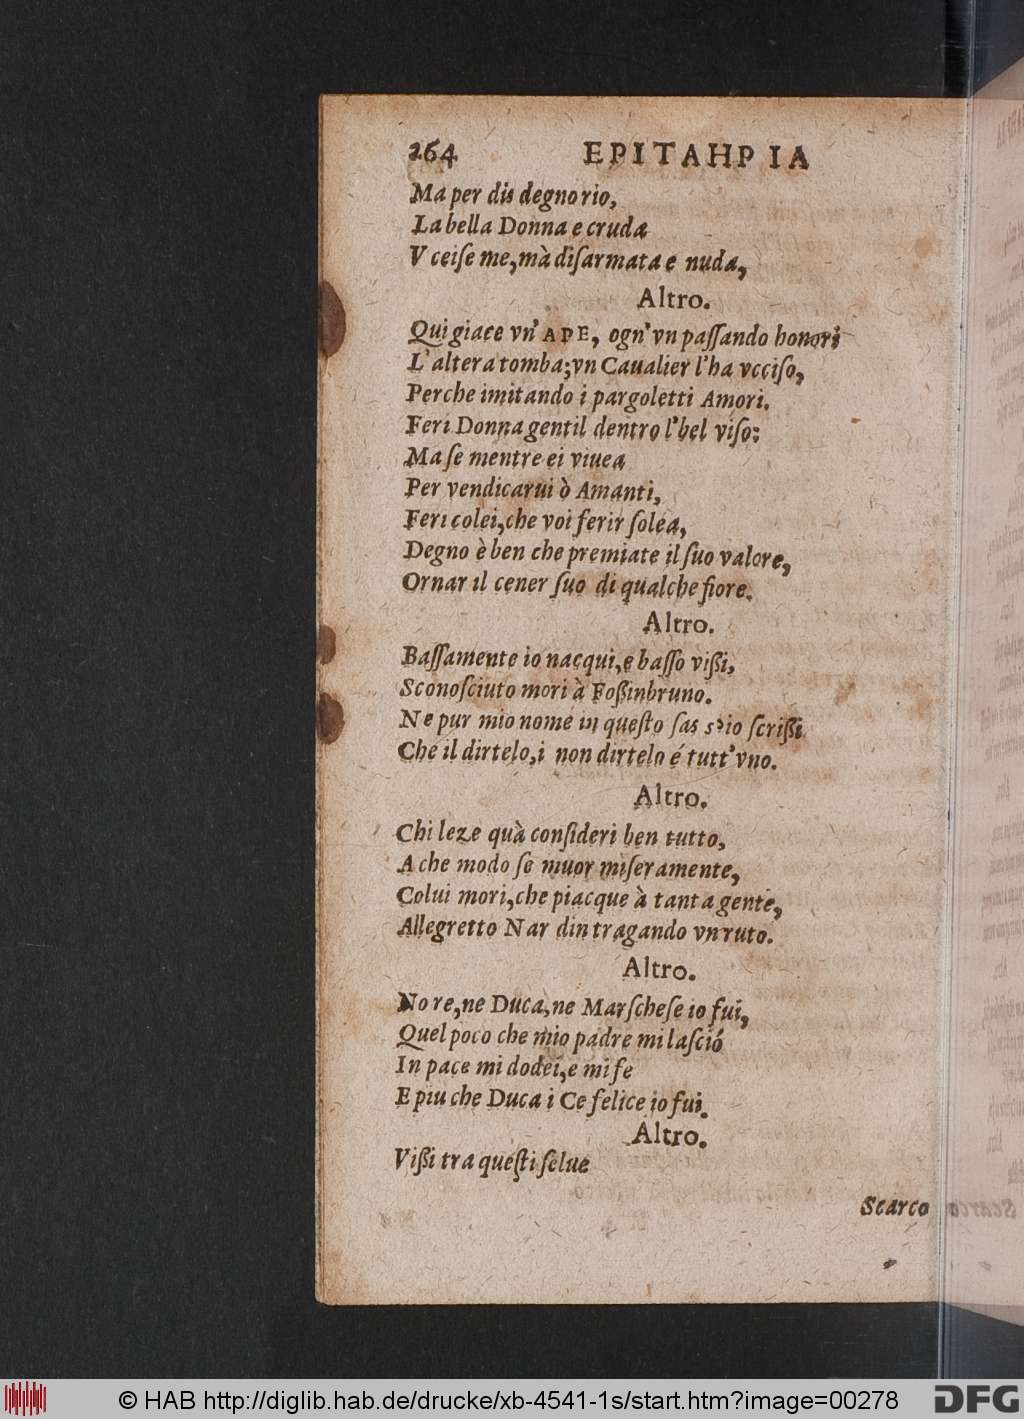 264 EPITAHPIA
Ma per dis degno rio,
La bella Donna e cruda
V cciſe me, mà diſarmata e nuda,
Altro.
Qui giace vn' APE, ogn' vn paſſando honori
L' altera tomba; vn Caualier l'ha vcciſo,
Perche imitando i pargoletti Amori.
Feri Donna gentil dentro l'bel viſo:
Ma ſe mentre ei viuea
Per vendicarui ò Amanti,
Feri colei, che voi ferir ſolea,
Degno è ben che premiate il ſuo valore,
Ornar il cener ſuo di qualche fiore.
Altro.
Baſſamente io nacqui, e baſſo vißi,
Sconoſciuto mori à Foßinbruno.
Ne pur mio nome in queſto ſas s'io ſcrißi
Che il dirtelo, i non dirtelo é tutt' vno.
Altro.
Chi leze quà conſideri ben tutto,
A che modo ſe muor miſeramente,
Colui mori, che piacque à tanta gente,
Allegretto Nar din tragando vn ruto.
Altro.
No re, ne Duca, ne Marſcheſe io fui,
Quel poco che mio padre mi laſció
In pace mi dodei, e mi fe
E piu che Duca i Ce felice io fui.
Altro.
Vißi tra queſti ſelue
Scarco
© HAB http://diglib.hab.de/drucke/xb-4541-1s/start.htm?image=00278 DFG